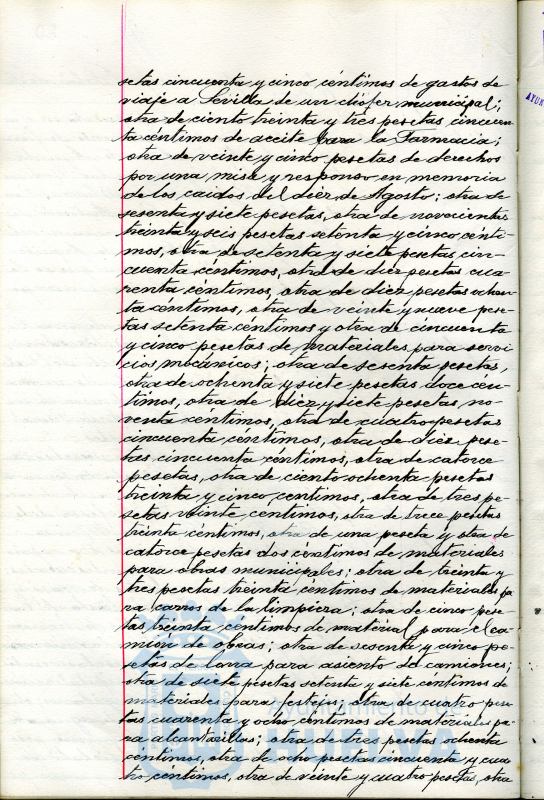 setas cincuenta y cinco céntimos de gastos de
viaje a Sevilla de un chófer municipal;
otra de ciento treinta y tres pesetas cincuen-
ta céntimos de aceite para la Farmacia;
otra de veinte y cinco pesetas de derechos
por una misa y responso en memoria
de los caidos del diez de Agosto; otra de
sesenta y siete pesetas, otra de novecientas
treinta y seis pesetas setenta y cinco cénti-
mos, otra de setenta y siete pesetas cin-
cuenta céntimos, otra de diez pesetas cua-
renta céntimos, otra de diez pesetas ochen-
ta céntimos, otra de veinte y nueve pese-
tas setenta céntimos y otra de cincuenta
y cinco pesetas de materiales para servi-
cios mecánicos; otra de sesenta pesetas,
otra de ochenta y siete pesetas doce cén-
timos, otra de diez y siete pesetas no-
venta céntimos, otra de cuatro pesetas
cincuenta céntimos, otra de diez pese-
tas cincuenta céntimos, otra de catorce
pesetas, otra de ciento ochenta pesetas
treinta y cinco centimos, otra de tres pe-
setas veinte céntimos, otra de trece pesetas
treinta céntimos, otra de una peseta y otra de
catorce pesetas dos céntimos de materiales
para obras municipales; otra de treinta y
tres pesetas treinta céntimos de materiales pa-
ra carros de la limpieza; otra de cinco pese-
tas treinta céntimos de material para el ca-
mión de obras; otra de sesenta y cinco pe-
setas de lona para asiento del camiones;
otra de siete pesetas setenta y siete céntimos de
materiales para festejos; otra de cuatro pese-
tas cuarenta y ocho céntimos de materiales pa-
ra alcantarillas; otra de tres pesetas ochenta
céntimos, otra de ocho pesetas cincuenta y cua-
tro céntimos, otra de veinte y cuatro pesetas, otra
Ayuntamiento de
HUELVA
AYUN